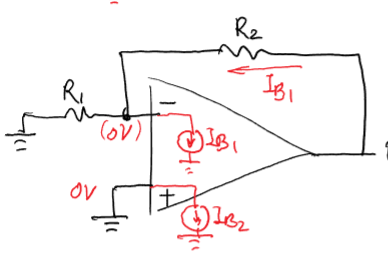 R2
IB1
R1
−
(0V)
IB1
0V
+
IB2